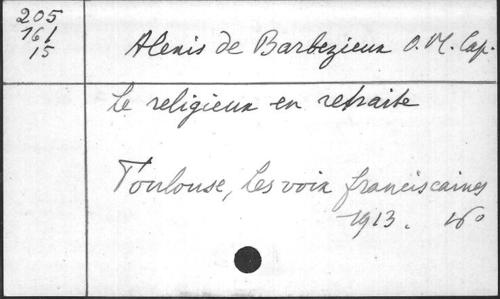 205
161
15
Alexis de Barbezieux O. M. Cap.
Le religieux en retraite
Toulouse, Les voix franciscaines
1913. 16°